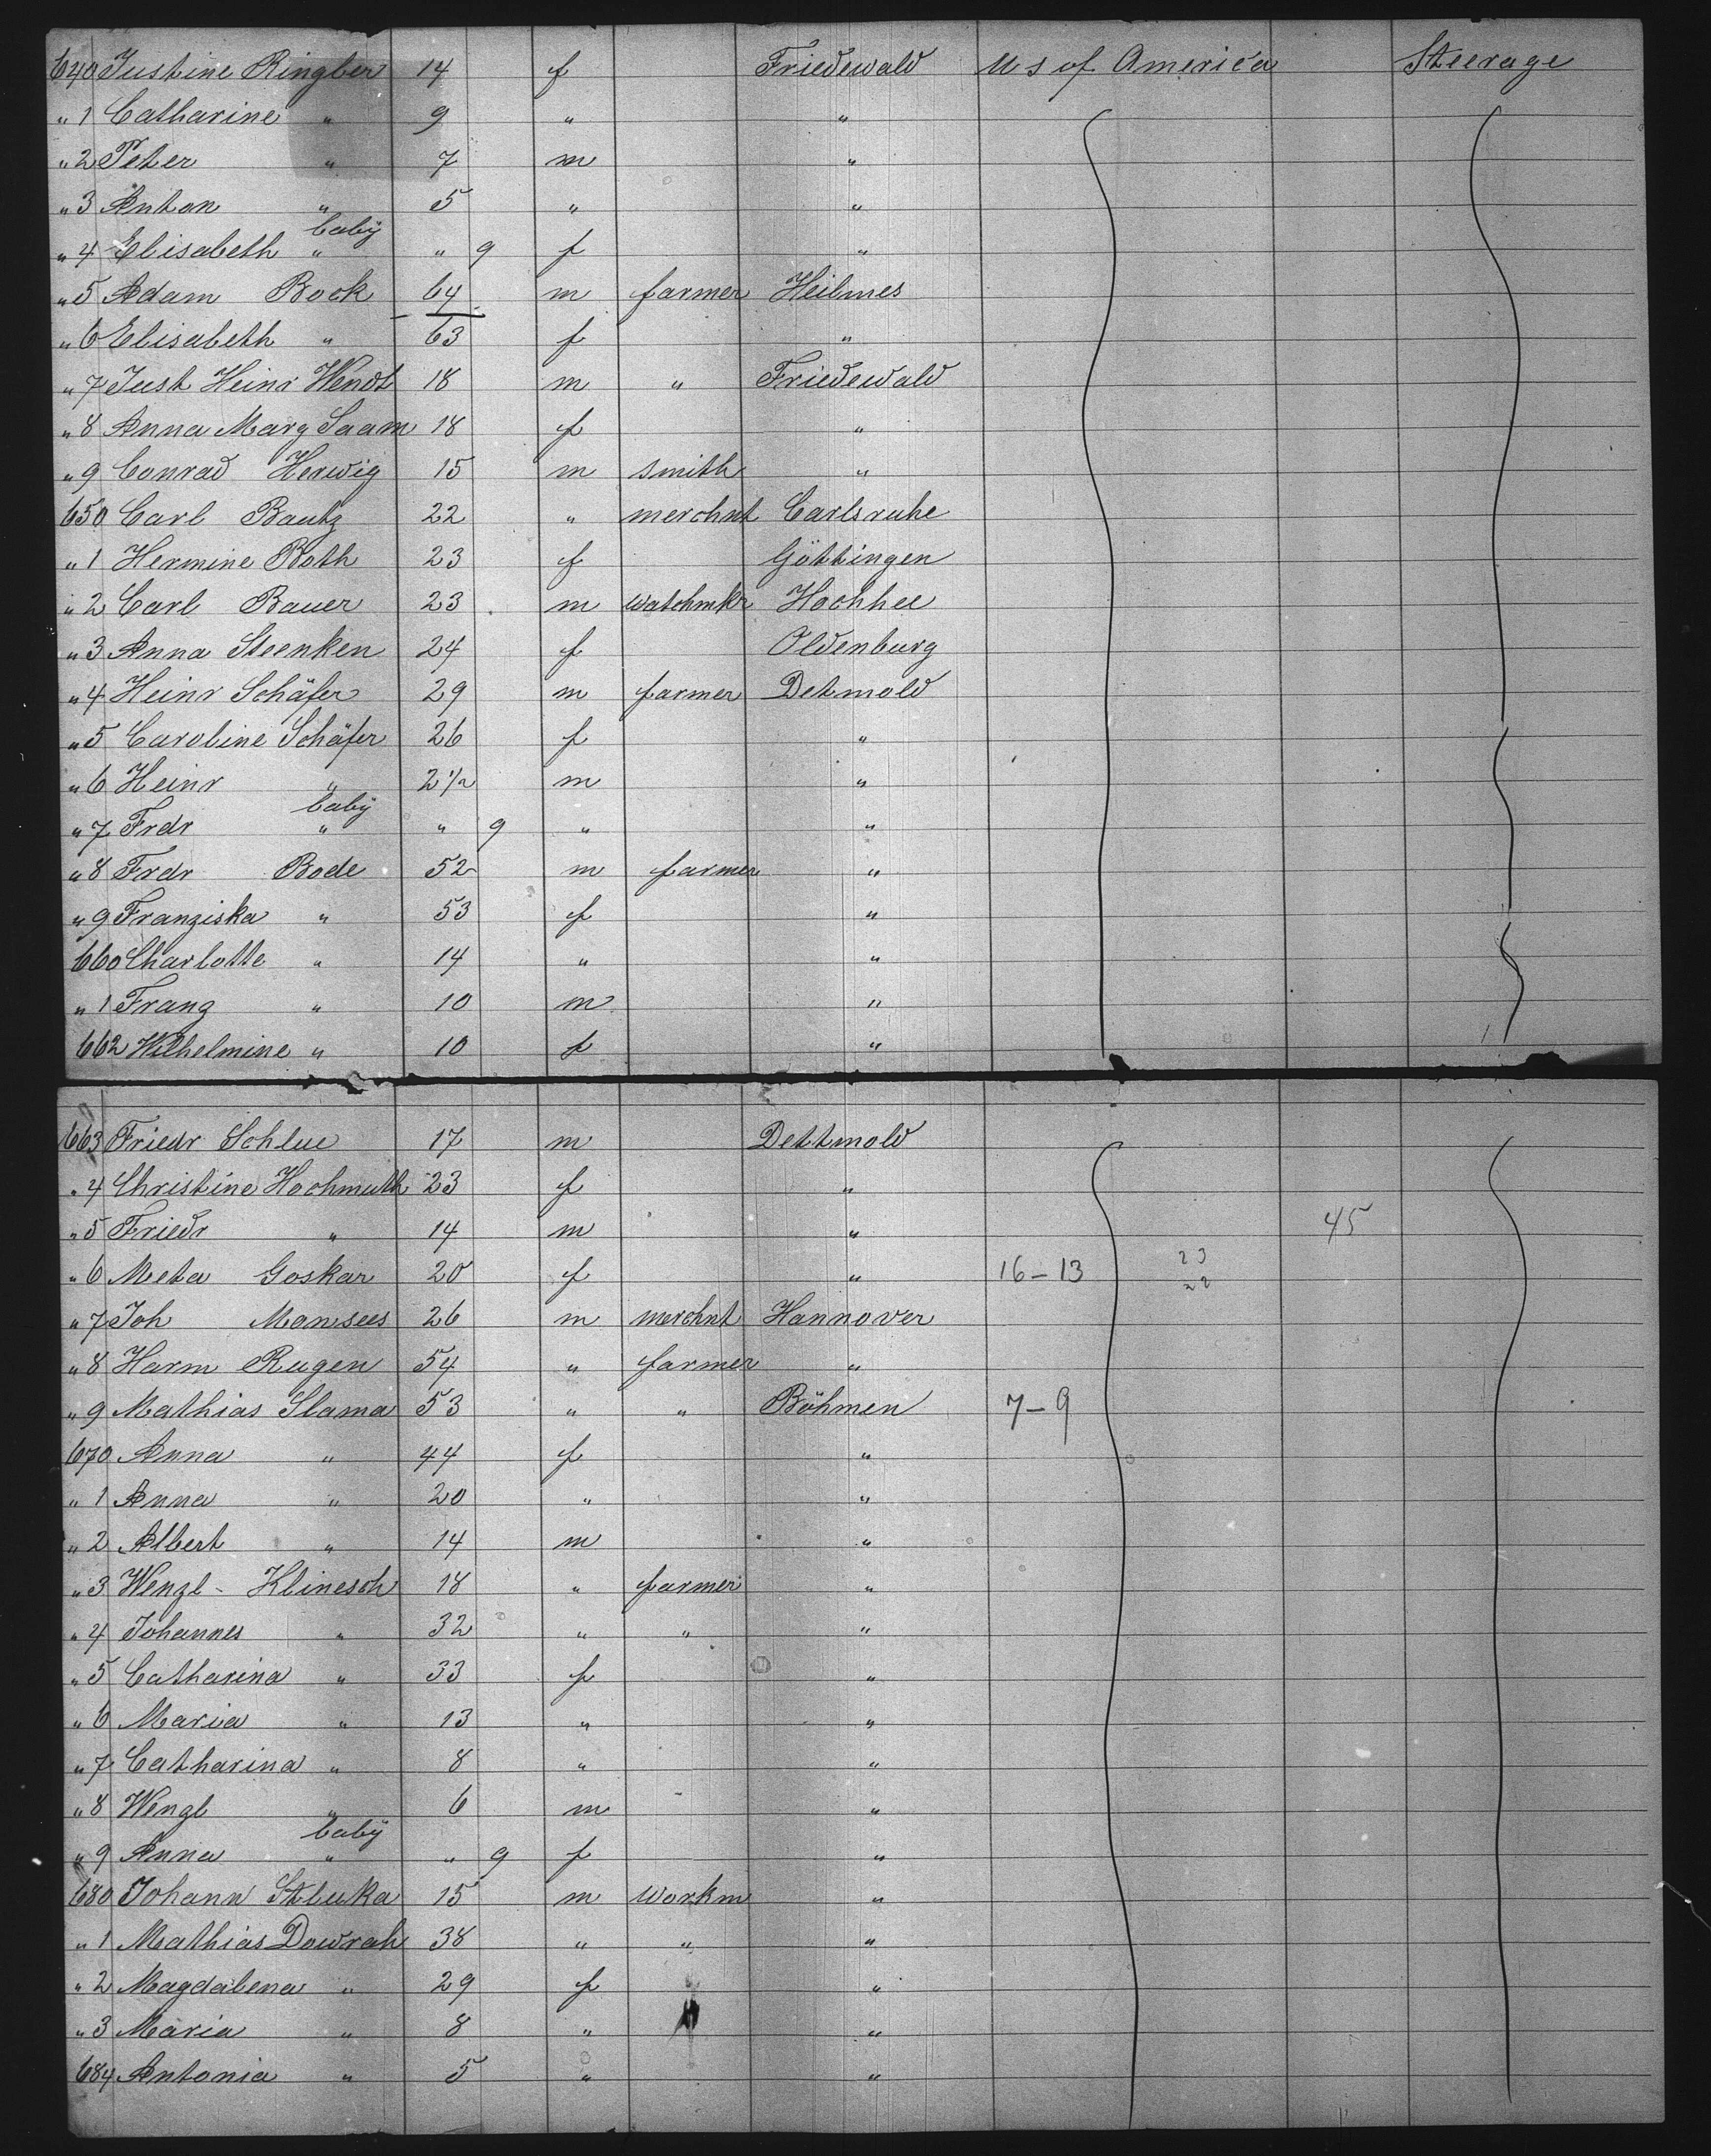 640 Justine Ringber 14 f Friedewald U S of America Steerage
" 1 Catharine " 9 " "
" 2 Peter " 7 m "
" 3 Anton " 5 " "
" 4 Elisabeth baby " " 9 f "
" 5 Adam Bock 64 m farmer Heilmes
" 6 Elisabeth " 63 f "
" 7 Just Heinr Wendt 18 m " Friedewald
" 8 Anna Marg Saam 18 f "
" 9 Conrad Herwig 15 m smith "
650 Carl Bautz 22 " merchnt Carlsruhe
" 1 Hermine Both 23 f Göttingen
" 2 Carl Bauer 23 m watchmkr Hochhee
" 3 Anna Steenken 24 f Oldenburg
" 4 Heinr Schäfer 29 m farmer Detmold
" 5 Caroline Schäfer 26 f "
" 6 Heinr " 2 1/2 m "
" 7 Frdr baby " " 9 " "
" 8 Frdr Bode 52 m farmer "
" 9 Franziska " 53 f "
660 Charlotte " 14 " "
" 1 Franz " 10 m "
662 Wilhelmine " 10 f "
663 Friedr Schlue 17 m Dettmold
" 4 Christine Hochmuth 23 f "
" 5 Friedr " 14 m " 45
" 6 Meta Goskar 20 f " 16-13 23 22
" 7 Joh Monsees 26 m merchnt Hannover
" 8 Harm Rugen 54 " farmer "
" 9 Mathias Slama 53 " " Böhmen 7-9
670 Anna " 44 f "
" 1 Anna " 20 " "
" 2 Albert " 14 m "
" 3 Wenzl - Klinesch 18 " farmer "
" 4 Johannes " 32 " " "
" 5 Catharina " 33 f "
" 6 Maria " 13 " "
" 7 Catharina " 8 " "
" 8 Wenzl " 6 m "
" 9 Anna baby " " 9 f "
680 Johann Stluka 15 m workm "
" 1 Mathias Dowrah 38 " " "
" 2 Magdalena " 29 f "
" 3 Maria " 8 " "
684 Antonia " 5 " "